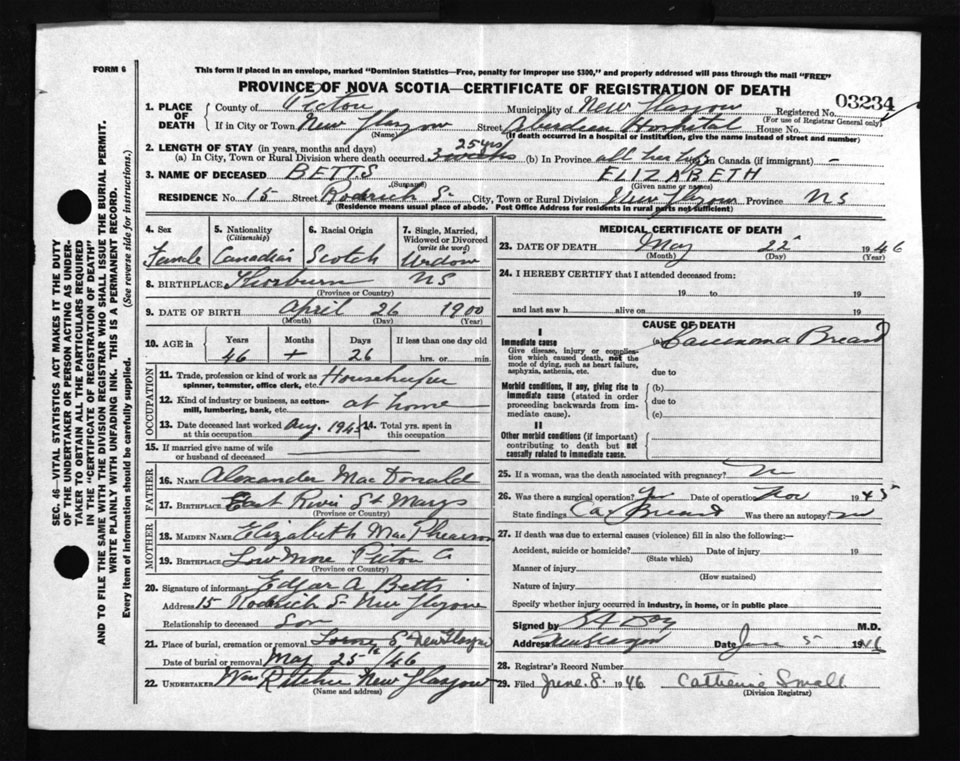 FORM 6
This form if placed in an envelope, marked "Dominion Statistics—Free, penalty for improper use $300," and properly addressed will pass through the mail "FREE"
PROVINCE OF NOVA SCOTIA—CERTIFICATE OF REGISTRATION OF DEATH
03234
1. PLACE OF DEATH
County of Pictou Municipality of New Glasgow Registered No.
(For use of Registrar General only)
If in City or Town New Glasgow Street Aberdeen Hospital House No.
(Name) (If death occurred in a hospital or institution, give the name instead of street and number)
2. LENGTH OF STAY (in years, months and days)
25 yrs
(a) In City, Town or Rural Division where death occurred 3 weeks (b) In Province all her life in Canada (if immigrant) -
3. NAME OF DECEASED BETTS ELIZABETH
(Surname) (Given name or names)
RESIDENCE No. 15 Street Rodrick S. City, Town or Rural Division New Glasgow Province NS
(Residence means usual place of abode. Post Office Address for residents in rural parts not sufficient)
4. Sex 5. Nationality 6. Racial Origin 7. Single, Married, Widowed or Divorced
(Citizenship) (write the word)
Female Canadian Scotch Widow
8. BIRTHPLACE Thorburn NS
(Province or Country)
9. DATE OF BIRTH April 26 1900
(Month) (Day) (Year)
10. AGE in Years Months Days If less than one day old
46 + 26 hrs. or min.
OCCUPATION
11. Trade, profession or kind of work as spinner, teamster, office clerk, etc. Housekeeper
12. Kind of industry or business, as cotton-mill, lumbering, bank, etc. at home
13. Date deceased last worked at this occupation Aug. 1945 14. Total yrs. spent in this occupation
15. If married give name of wife or husband of deceased
FATHER
16. NAME Alexander MacDonald
17. BIRTHPLACE East River St Marys
(Province or Country)
MOTHER
18. MAIDEN NAME Elizabeth MacPhearson
19. BIRTHPLACE Pictou Co
(Province or Country)
20. Signature of informant Edgar A. Betts
Address 15 Rodrick S New Glasgow
Relationship to deceased Son
21. Place of burial, cremation or removal Lorne St New Glasgow
Date of burial or removal May 25th /46
22. UNDERTAKER Wm Ritchie New Glasgow
(Name and address)
MEDICAL CERTIFICATE OF DEATH
23. DATE OF DEATH May 22 1946
(Month) (Day) (Year)
24. I HEREBY CERTIFY that I attended deceased from:
19 to 19
and last saw h alive on 19
CAUSE OF DEATH
I
Immediate cause (a) Carcinoma Breast
Give disease, injury or complication which caused death, not the mode of dying, such as heart failure, asphyxia, asthenia, etc.
due to
Morbid conditions, if any, giving rise to immediate cause (stated in order proceeding backwards from immediate cause).
(b)
due to
(c)
II
Other morbid conditions (if important) contributing to death but not causally related to immediate cause.
25. If a woman, was the death associated with pregnancy? No
26. Was there a surgical operation? Yes Date of operation Nov 1945
State findings Ca Breast Was there an autopsy? no
27. If death was due to external causes (violence) fill in also the following:—
Accident, suicide or homicide? Date of injury 19
(State which)
Manner of injury
(How sustained)
Nature of injury
Specify whether injury occurred in industry, in home, or in public place
Signed by M.D.
Address New Glasgow Date June 5 1946
28. Registrar's Record Number
29. Filed June. 8. 1946 Catherine Small
(Division Registrar)
SEC. 46—VITAL STATISTICS ACT MAKES IT THE DUTY
OF THE UNDERTAKER OR PERSON ACTING AS UNDER-
TAKER TO OBTAIN ALL THE PARTICULARS REQUIRED
IN THE "CERTIFICATE OF REGISTRATION OF DEATH"
AND TO FILE THE SAME WITH THE DIVISION REGISTRAR WHO SHALL ISSUE THE BURIAL PERMIT.
WRITE PLAINLY WITH UNFADING INK. THIS IS A PERMANENT RECORD.
Every item of information should be carefully supplied. (See reverse side for instructions.)